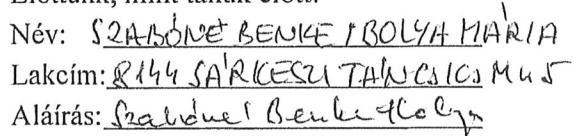 Előttünk, mint tanúk előtt:
Név: SZABÓNÉ BENKE IBOLYA MÁRIA
Lakcím: 8144 SÁRKESZI TÁNCSICS M u 5
Aláírás: Szabóné Benke Ibolya